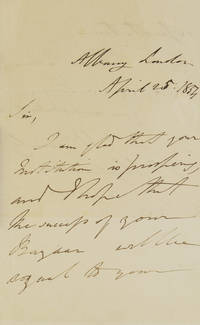 Albany London
April 25 1854
Sir,
I am glad that your
Institution is prospering
and I hope that
the success of your
Bazaar will be
equal to your